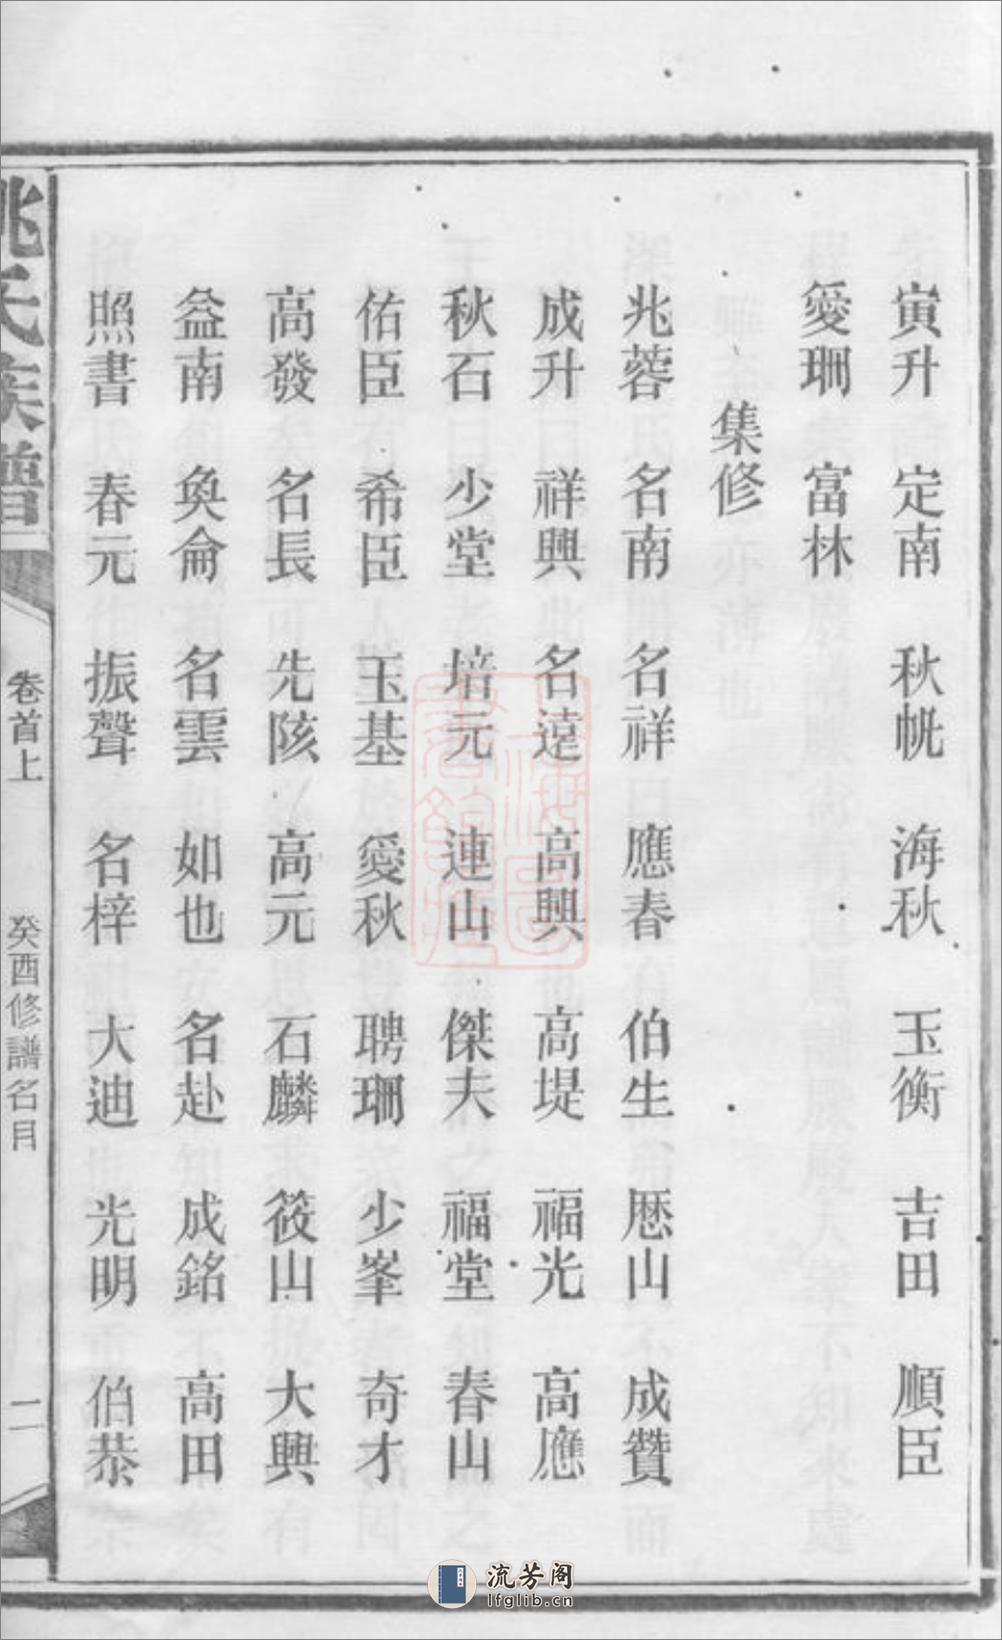 寅升 定南 秋帨 海秋 玉衡 吉田 順臣
愛珊 富林
集修
兆蓉 名南 名祥 應春 伯生 歴山 成贊
成升 祥興 名遠 高興 高堤 福光 高應
秋石 少堂 培元 連山 傑夫 福堂 春山
佑臣 希臣 玉基 愛秋 聘珊 少峯 奇才
高發 名長 先陔 高元 石麟 筱山 大興
益南 奐侖 名雲 如也 名赴 成銘 高田
照書 春元 振聲 名梓 大迪 光明 伯恭
姚氏族譜 卷首上 癸酉修譜名目 二
流芳阁
lfglib.cn